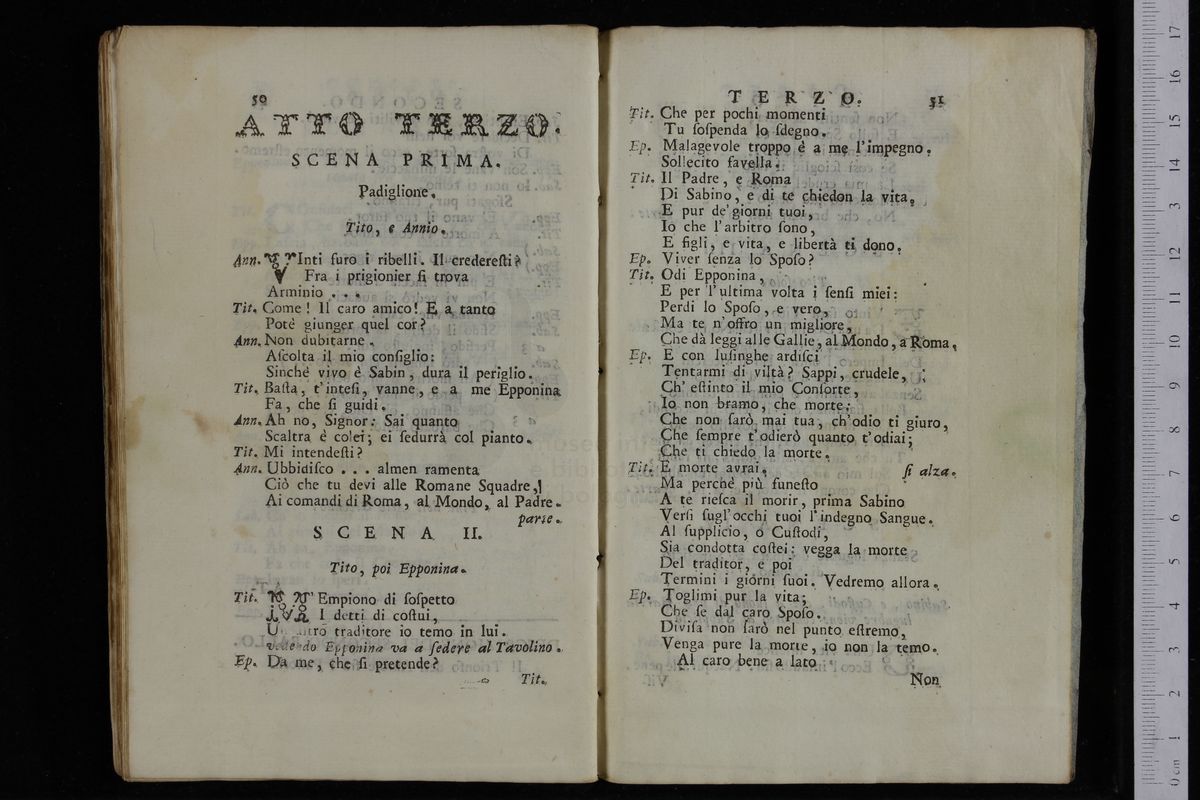 50
ATTO TERZO.
SCENA PRIMA.
Padiglione.
Tito, e Annio.
Ann. VInti ſuro i ribelli. Il crederesti?
Fra i prigionier ſi trova
Arminio . . .
Tit. Come! Il caro amico! E a tanto
Potè giunger quel cor?
Ann. Non dubitarne.
Aſcolta il mio conſiglio:
Sinchè vivo è Sabin, dura il periglio.
Tit. Baſta, t'inteſi, vanne, e a me Epponina
Fa, che ſi guidi.
Ann. Ah no, Signor: Sai quanto
Scaltra è colei; ei ſedurrà col pianto.
Tit. Mi intendeſti?
Ann. Ubbidiſco . . . almen ramenta
Ciò che tu devi alle Romane Squadre,
Ai comandi di Roma, al Mondo, al Padre.
parte.
SCENA II.
Tito, poi Epponina.
Tit. M'Empiono di ſoſpetto
I detti di coſtui,
traditore io temo in lui.
Epponina va a ſedere al Tavolino.
Ep. Da me, che ſi pretende?
Tit.
TERZO. 51
Tit. Che per pochi momenti
Tu ſoſpenda lo ſdegno.
Ep. Malagevole troppo è a me l'impegno.
Sollecito favella.
Tit. Il Padre, e Roma
Di Sabino, e di te chiedon la vita,
E pur de'giorni tuoi,
Io che l'arbitro ſono,
E figli, e vita, e libertà ti dono.
Ep. Viver ſenza lo Spoſo?
Tit. Odi Epponina,
E per l'ultima volta i ſenſi miei:
Perdi lo Spoſo, e vero,
Ma te n'offro un migliore,
Che dà leggi alle Gallie, al Mondo, a Roma,
Ep. E con luſinghe ardiſci
Tentarmi di viltà? Sappi, crudele,
Ch' eſtinto il mio Conſorte,
Io non bramo, che morte;
Che non ſarò mai tua, ch'odio ti giuro,
Che ſempre t'odierò quanto t'odiai;
Che ti chiedo la morte.
Tit. E morte avrai. ſi alza.
Ma perchè più funeſto
A te rieſca il morir, prima Sabino
Verſi ſugl'occhi tuoi l'indegno Sangue.
Al ſupplicio, o Cuſtodi,
Sia condotta coſtei: vegga la morte
Del traditor, e poi
Termini i giorni ſuoi. Vedremo allora.
Ep. Toglimi pur la vita;
Che ſe dal caro Spoſo
Diviſa non ſarò nel punto eſtremo,
Venga pure la morte, io non la temo.
Al caro bene a lato
Non